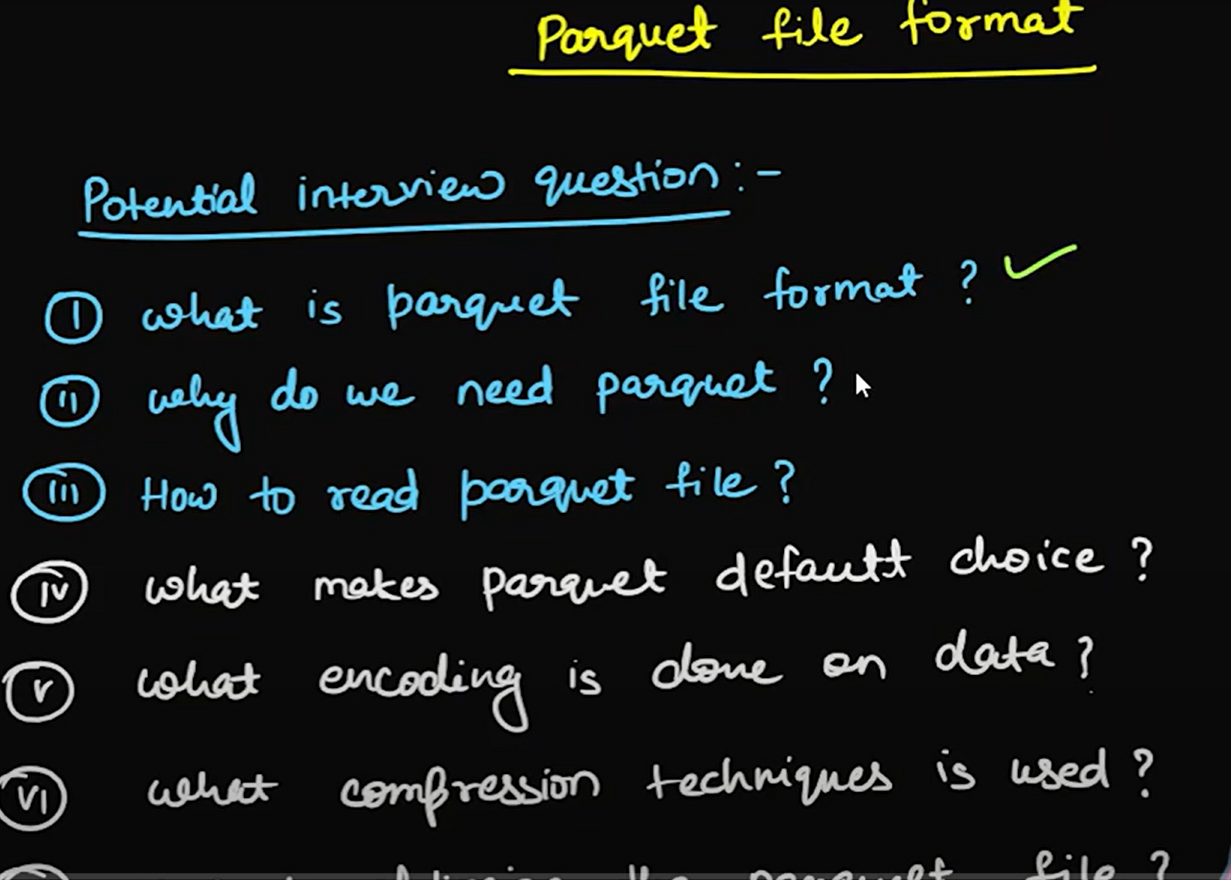 Parquet file format
Potential interview question:-
(i) what is parquet file format ?
(ii) why do we need parquet ?
(iii) How to read parquet file ?
(iv) what makes parquet default choice ?
(v) what encoding is done on data ?
(vi) what compression techniques is used ?
the parquet file ?